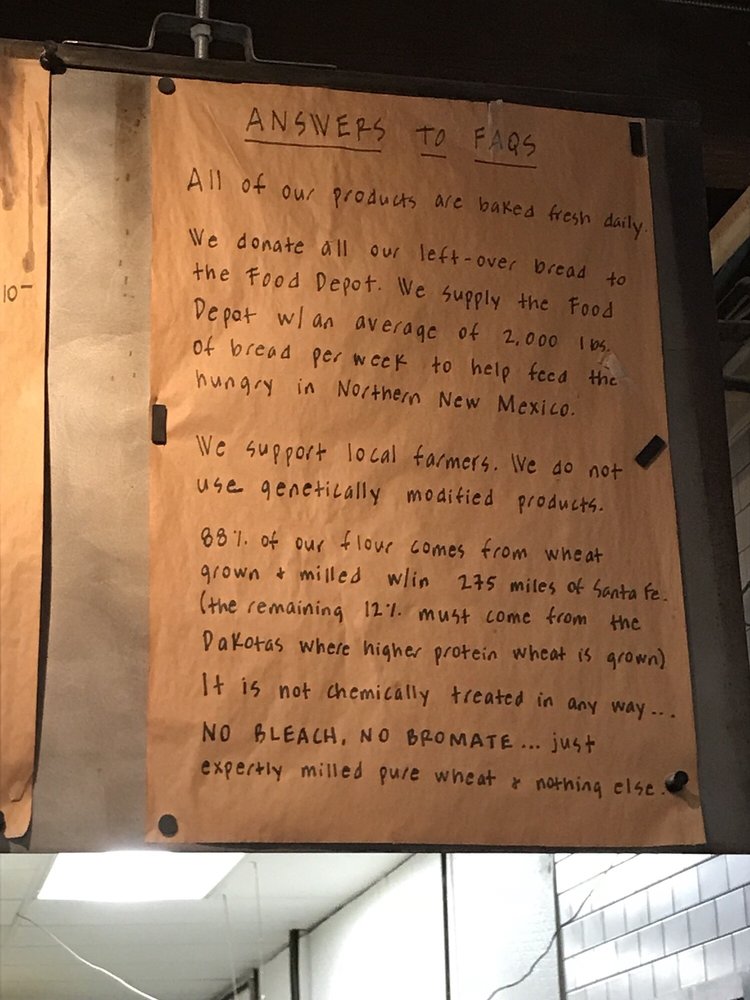 ANSWERS TO FAQS
All of our products are baked fresh daily.
We donate all our left-over bread to
the Food Depot. We supply the Food
Depot w/an average of 2,000 lbs.
of bread per week to help feed the
hungry in Northern New Mexico.
We support local farmers. We do not
use genetically modified products.
88% of our flour comes from wheat
grown & milled w/in 275 miles of Santa Fe.
(the remaining 12% must come from the
Dakotas where higher protein wheat is grown)
It is not chemically treated in any way...
NO BLEACH, NO BROMATE... just
expertly milled pure wheat & nothing else.
10-